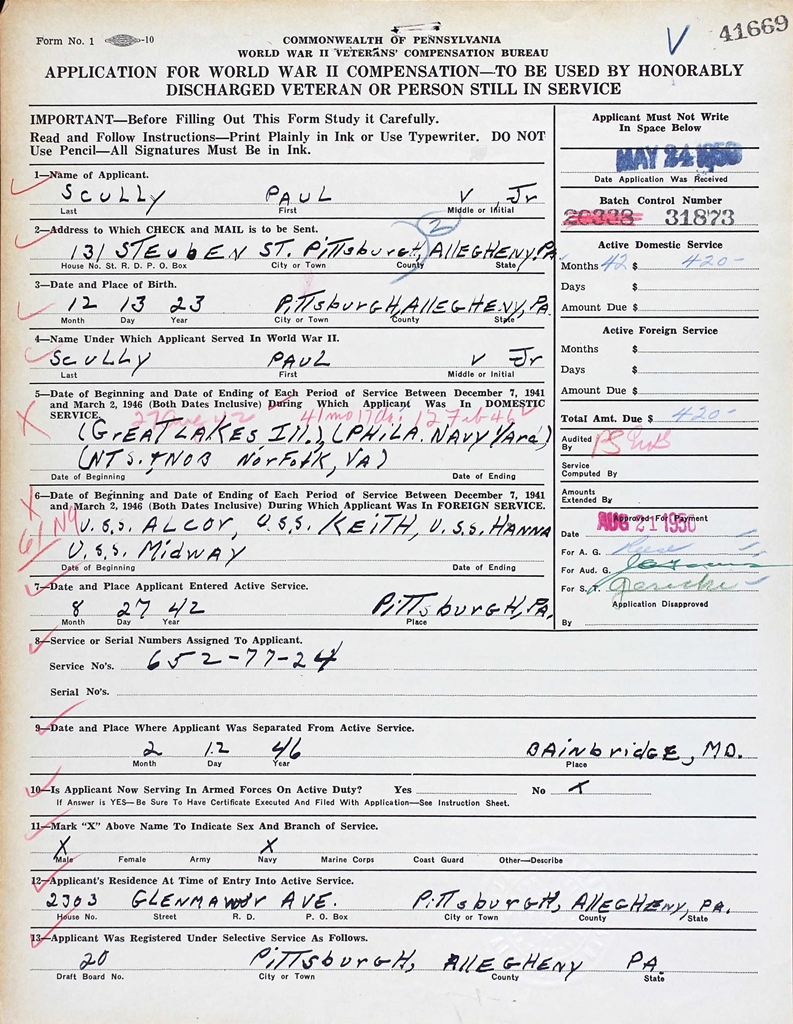 Form No. 1 -10
41669
COMMONWEALTH OF PENNSYLVANIA
WORLD WAR II VETERANS' COMPENSATION BUREAU
APPLICATION FOR WORLD WAR II COMPENSATION—TO BE USED BY HONORABLY
DISCHARGED VETERAN OR PERSON STILL IN SERVICE
IMPORTANT—Before Filling Out This Form Study it Carefully.
Read and Follow Instructions—Print Plainly in Ink or Use Typewriter. DO NOT
Use Pencil—All Signatures Must Be in Ink.
Applicant Must Not Write
In Space Below
MAY 24 1950
Date Application Was Received
Batch Control Number
20328 31873
1—Name of Applicant.
Scully PAUL V Jr
Last First Middle or Initial
2—Address to Which CHECK and MAIL is to be Sent.
2
131 STEUBEN ST. Pittsburgh, ALLEGHENY, PA
House No. St. R. D. P. O. Box City or Town County State
3—Date and Place of Birth.
12 13 23 Pittsburgh, ALLEGHENY, PA
Month Day Year City or Town County State
4—Name Under Which Applicant Served In World War II.
Scully PAUL V Jr
Last First Middle or Initial
5—Date of Beginning and Date of Ending of Each Period of Service Between December 7, 1941
and March 2, 1946 (Both Dates Inclusive) During Which Applicant Was In DOMESTIC
SERVICE. 27 Aug 42 41 mo 17 da. 12 Feb 46
(GREAT LAKES Ill.) (PHILA. NAVY YARD)
(NTS. NOB NORFOLK, VA)
Date of Beginning Date of Ending
6—Date of Beginning and Date of Ending of Each Period of Service Between December 7, 1941
and March 2, 1946 (Both Dates Inclusive) During Which Applicant Was In FOREIGN SERVICE.
U.S.S. ALCOR, U.S.S. KEITH, U.S.S. HANNA
U.S.S. MIDWAY
Date of Beginning Date of Ending
7—Date and Place Applicant Entered Active Service.
8 27 42 Pittsburgh, PA.
Month Day Year Place
Active Domestic Service
Months 42 $ 420-
Days $
Amount Due $
Active Foreign Service
Months $
Days $
Amount Due $
Total Amt. Due $ 420-
Audited
By
Service
Computed By
Amounts
Extended By
Approved For Payment
Date AUG 21 1950
For A. G.
For Aud. G.
For S. T.
Application Disapproved
By
8—Service or Serial Numbers Assigned To Applicant.
Service No's. 652-77-24
Serial No's.
9—Date and Place Where Applicant Was Separated From Active Service.
2 12 46 BAINbridge, MD.
Month Day Year Place
10—Is Applicant Now Serving In Armed Forces On Active Duty? Yes No X
If Answer is YES—Be Sure To Have Certificate Executed And Filed With Application—See Instruction Sheet.
11—Mark "X" Above Name To Indicate Sex and Branch of Service.
X X
Male Female Army Navy Marine Corps Coast Guard Other—Describe
12—Applicant's Residence At Time of Entry Into Active Service.
2303 GLENMAWR AVE. Pittsburgh, ALLEGHENY, PA.
House No. Street R. D. P. O. Box City or Town County State
13—Applicant Was Registered Under Selective Service As Follows.
20 Pittsburgh, ALLEGHENY PA.
Draft Board No. City or Town County State